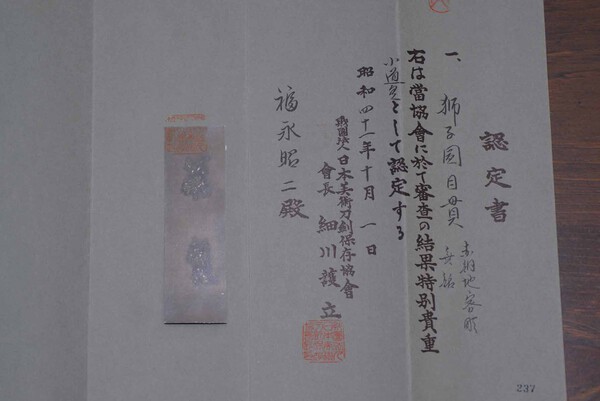 認定書
一、獅子図目貫 赤銅地容彫
無銘
右は當協會に於て審査の結果特別貴重
小道具として認定する
昭和四十一年十月一日
財團法人日本美術刀劍保存協會
會長 細川護立
福永昭二殿
237